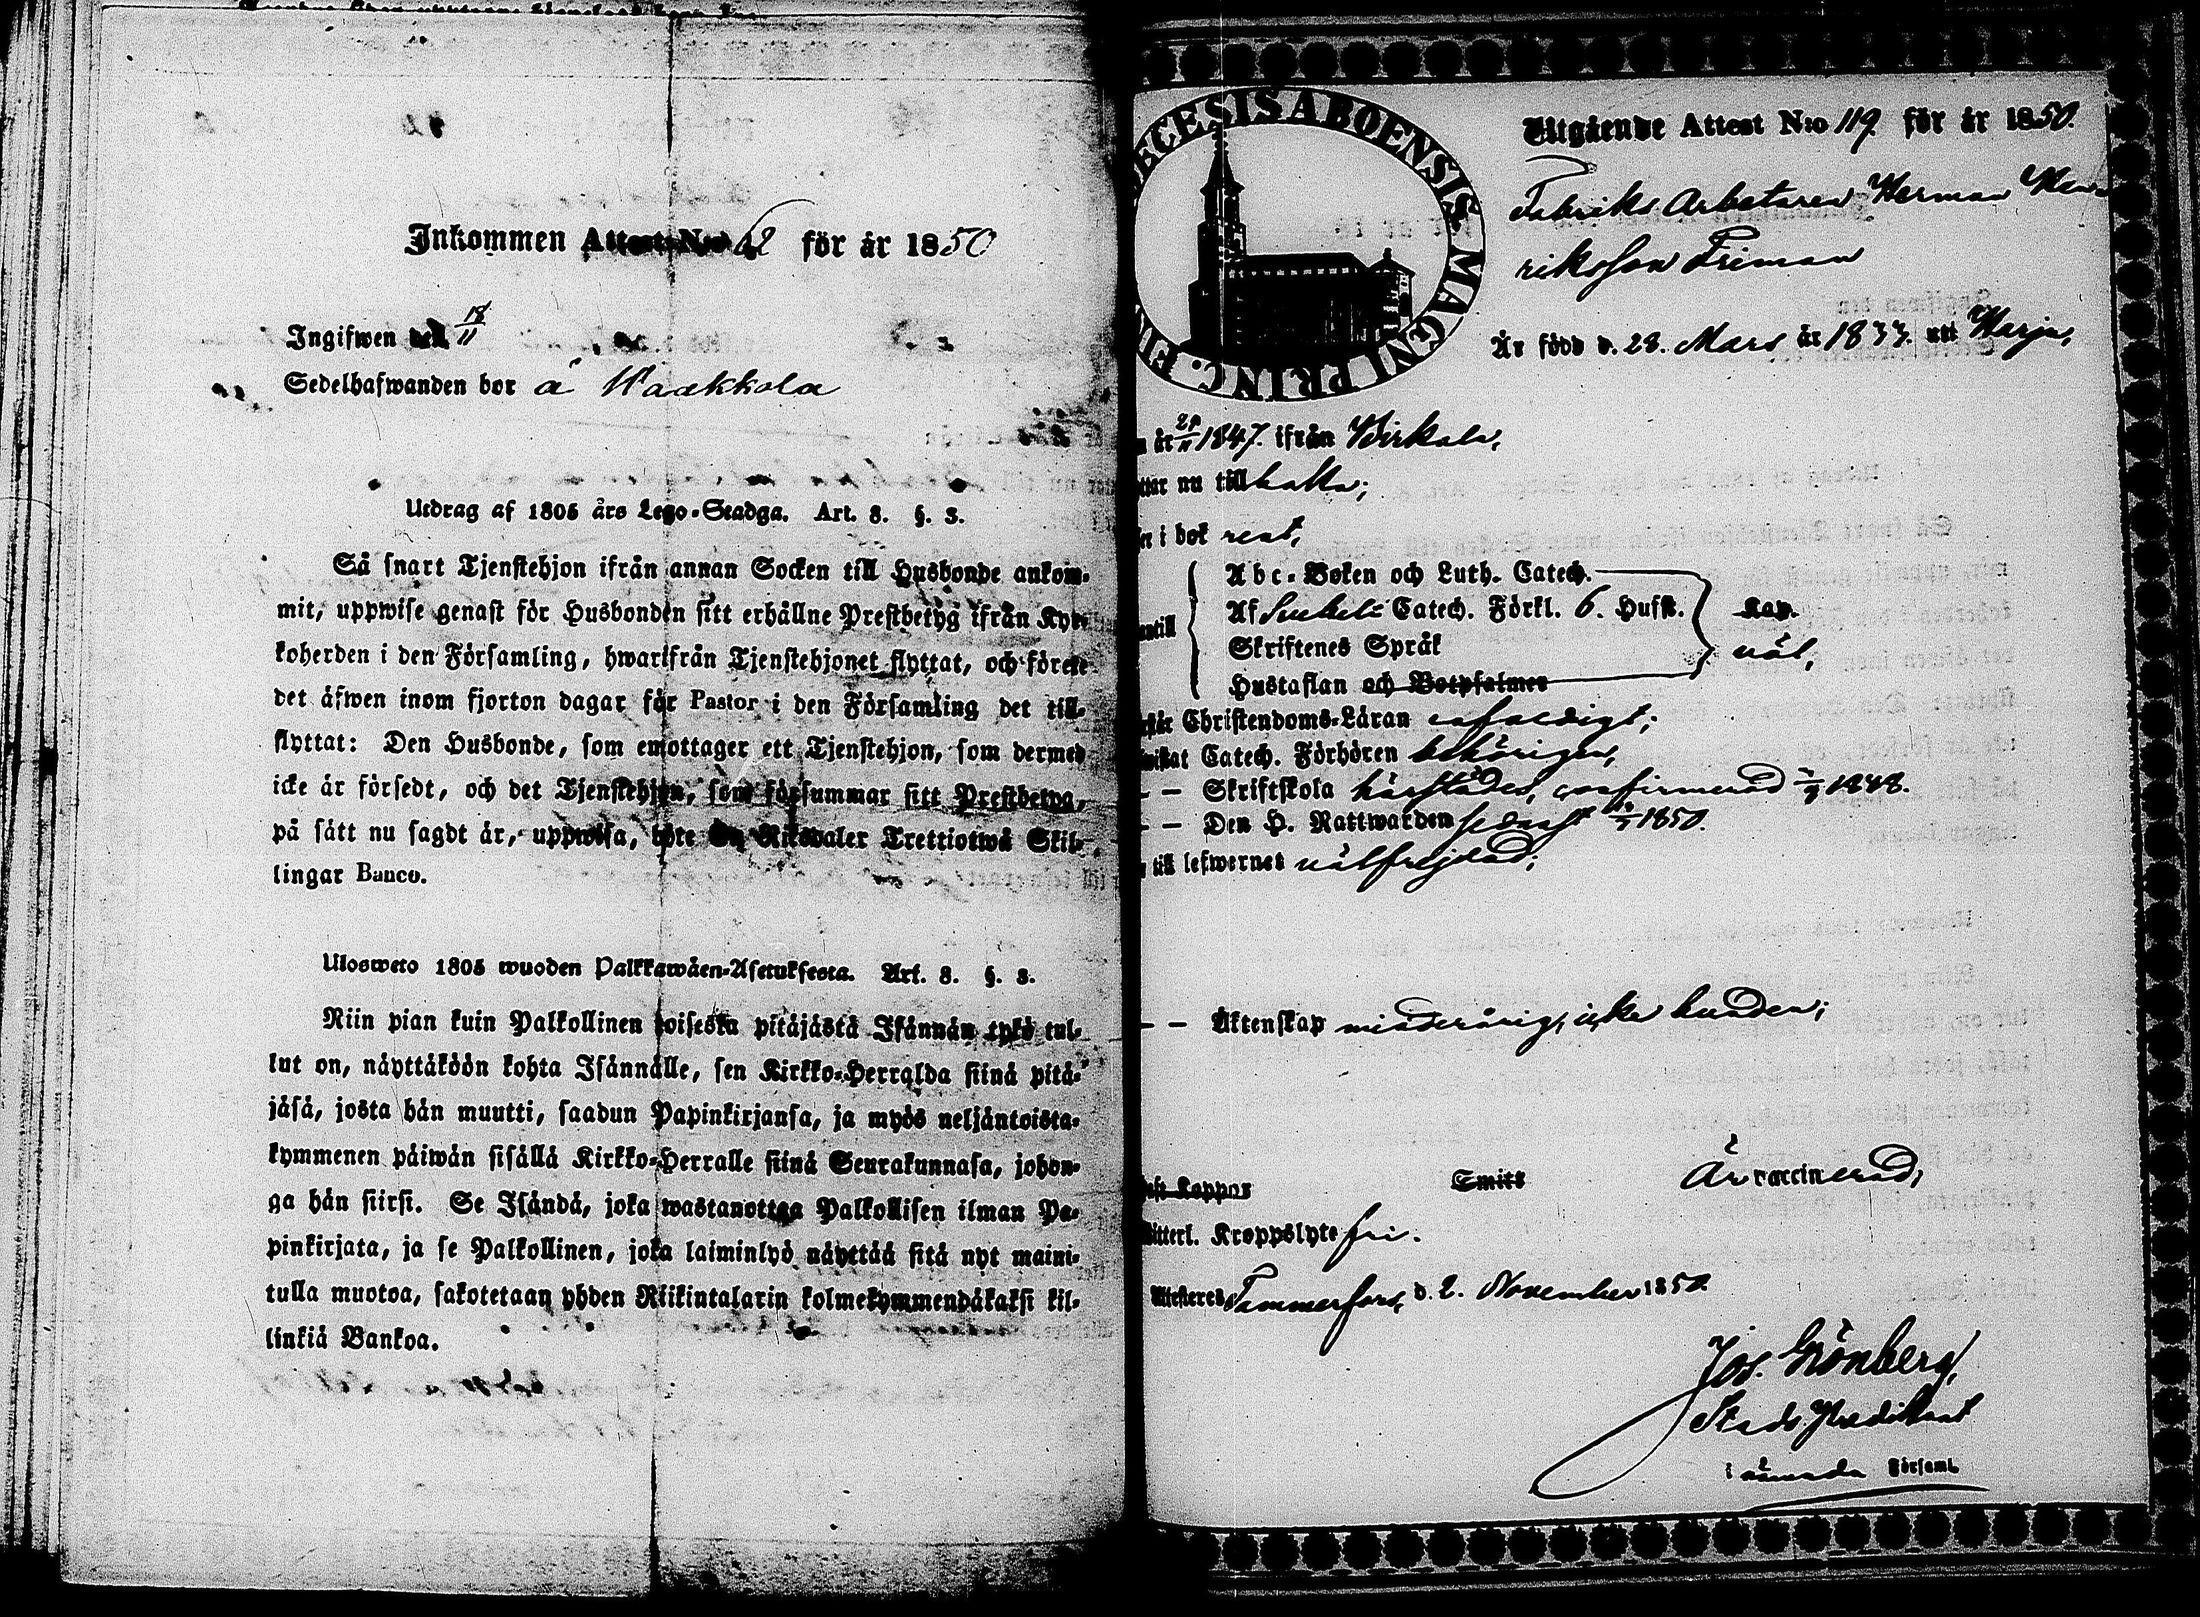 Inkommen Attest N:o 62 för år 1850
Ingifwen den 18/11
Sedelhafwanden bor å Waakkola
Utdrag af 1805 års Lego-Stadga. Art. 8. §. 3.
Så snart Tjenstehjon ifrån annan Socken till Husbonde ankom-
mit, uppwise genast för Husbonden sitt erhållne Prestbetyg ifrån Kyr-
koherden i den Församling, hwarifrån Tjenstehjonet flyttat, och förete
det äfwen inom fjorton dagar för Pastor i den Församling det till-
flyttat: Den Husbonde, som emottager ett Tjenstehjon, som dermed
icke är försedt, och det Tjenstehjon, som försummar sitt Prestbetyg,
på sätt nu sagdt är, uppwisa, böte En Riksdaler Trettiotwå Skil-
lingar Banco.
Ulosweto 1805 wuoden Palkkawäen-Asetuksesta. Art. 8. §. 3.
Niin pian kuin Palkollinen toisesta pitäjästä Isännän tykö tul-
lut on, näyttäköön kohta Isännälle, sen Kirkko-Herralda siinä pitä-
jäsä, josta hän muutti, saadun Papinkirjansa, ja myös neljäntoista-
kymmenen päiwän sisällä Kirkko-Herralle siinä Seurakunnasa, johon-
ga hän siirsi. Se Isändä, joka wastanottaa Palkollisen ilman Pa-
pinkirjata, ja se Palkollinen, joka laiminlyö näyttää sitä nyt maini-
tulla muotoa, sakotetaan yhden Riikintalarin kolmekymmendäkaksi kil-
linkiä Bankoa.
DIECESIS ABOENSIS MAGNI PRINC. FIN
Utgående Attest N:o 119. för år 1850.
Fabriks Arbetaren Herman Hen-
riksson Friman
Är född d. 28. Mars år 1833. uti Harju,
år 29/11 1847. ifrån Birkala,
ttar nu till
er i bok rent,
Abc-Boken och Luth. Catech.
Af Svebelii Catech. Förkl. 6. Hufst.
Skriftenes Språk
Hustaflan och Botpsalmer
antill
Kap.
väl,
Christendoms-Läran enfaldigt;
wistat Catech. Förhören behörigen,
– – Skriftskola härstädes, confirmerad 1848.
– – Den H. Nattwarden senast 1850.
till lefwernet välfrejdad;
– – Äktenskap minderårig, icke bunden;
Koppor
Smitt
Är vaccinerad,
itterl. Kroppslyte fri.
Attesteres Tammerfors, d. 2. November 1850.
Jos. Grönberg,
Stads Predikant
i nämnda Församl.